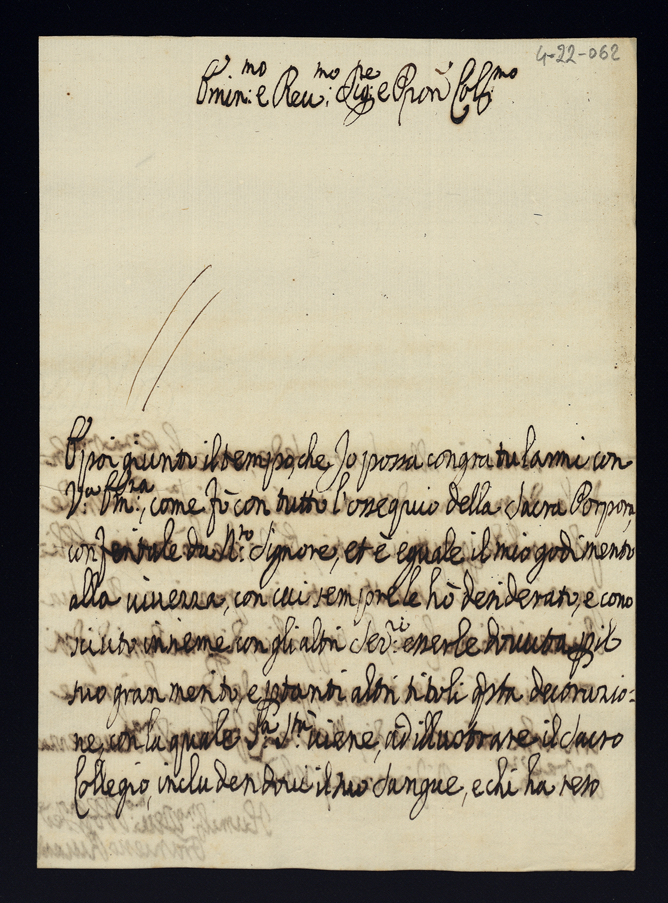 4-22-062
Emin:mo e Reu:mo Sig:re e Pron Col:mo
E poi giunto il tempo, che Io possa congratularmi con
V:ra Em:za, come fò con tutto l'ossequio della Sacra Porpora,
conferitale da N:ro Signore, et è eguale il mio godimento
alla viuezza, con cui sempre le hò desiderato, e cono
sciuto insieme con gli altri Ser:ri esserle douuta p il
suo gran merito, e p tanti altri titoli q̃sta decorazio=
ne, con la quale S:a S:tà uiene, ad illustrare il Sacro
Collegio, includendoui il suo Sangue, e chi ha reso